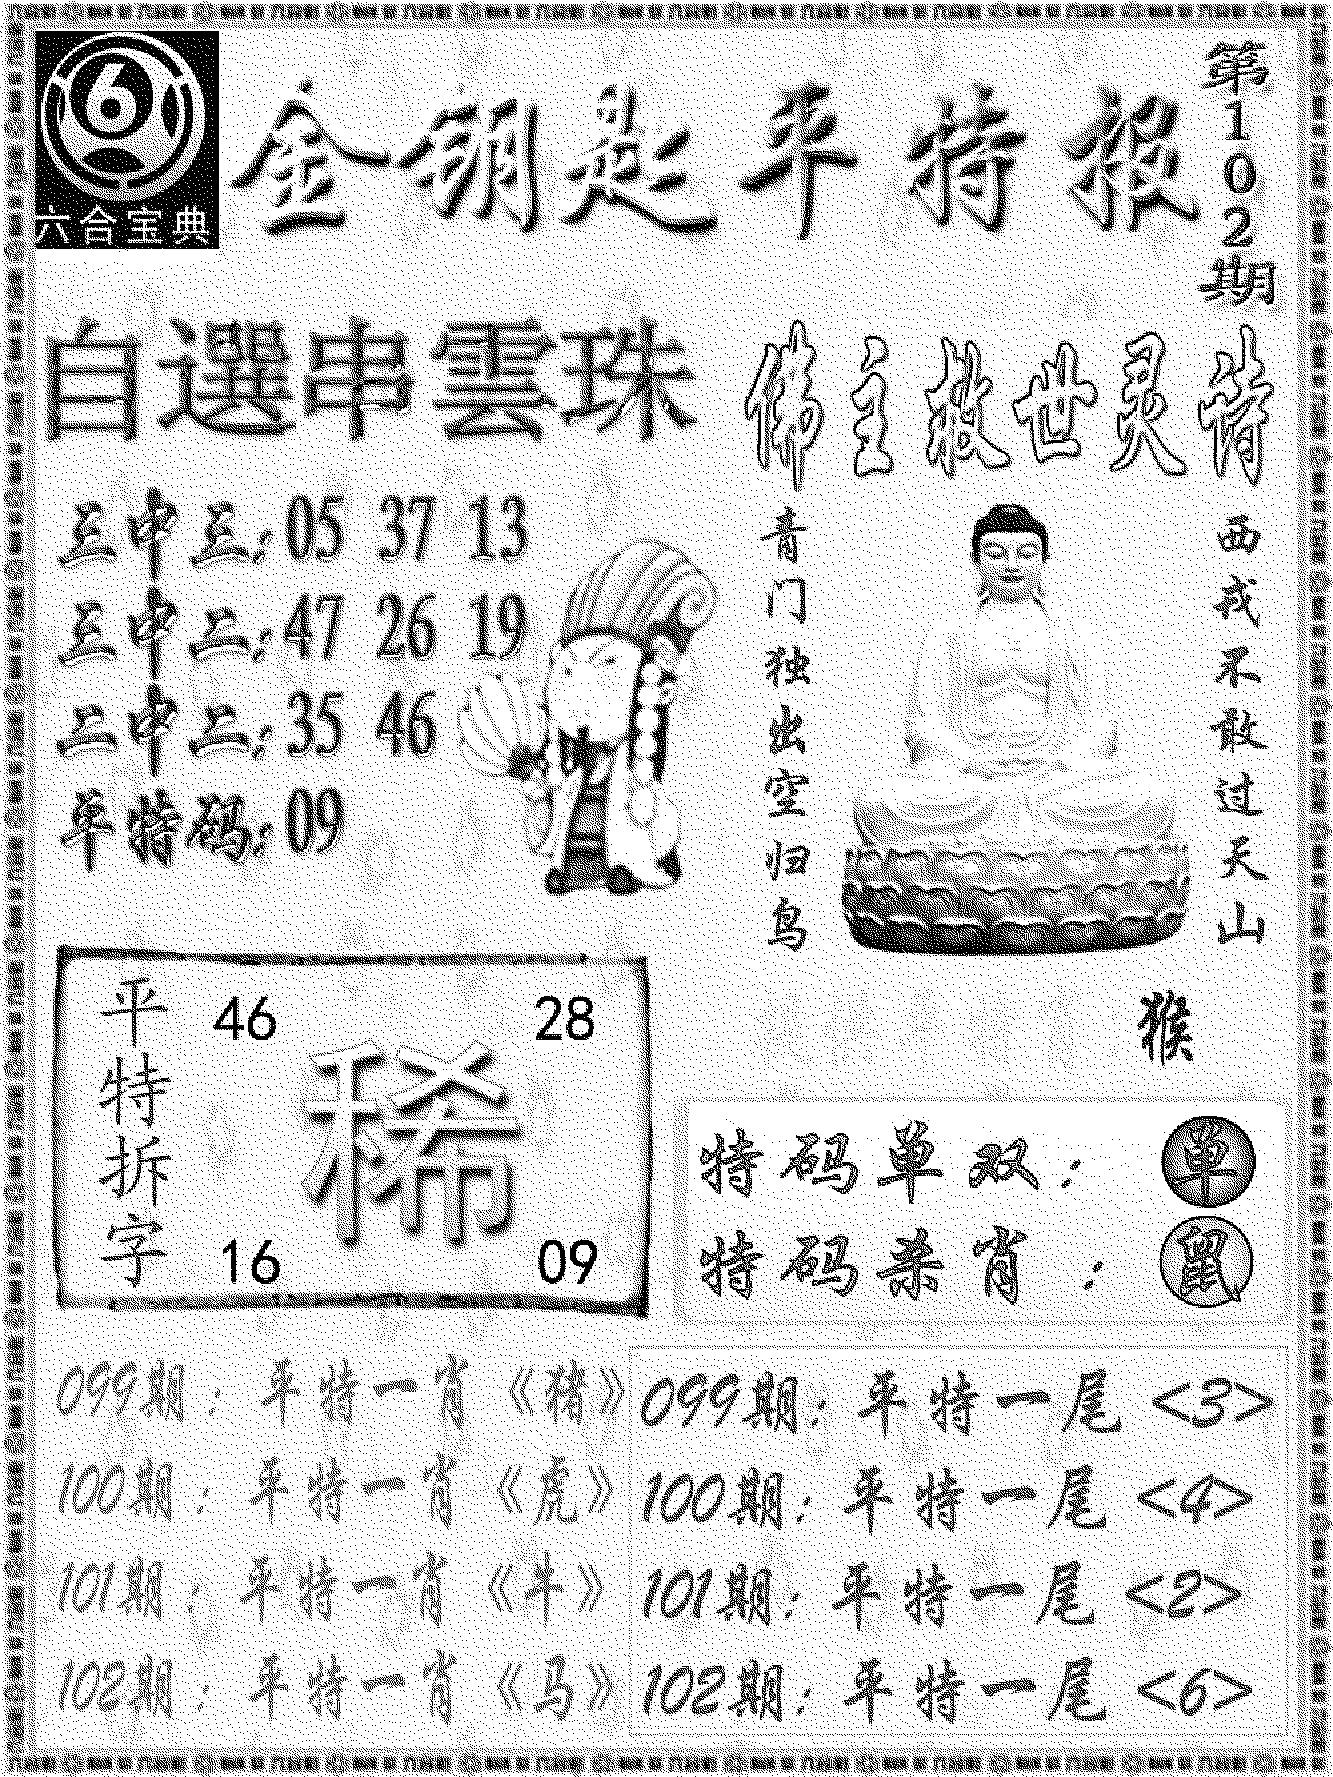 六合宝典
金钥匙平特报
第102期
自選串雲珠
三中三:05 37 13
三中二:47 26 19
二中二:35 46
单特码:09
佛主救世灵诗
青门独出空归鸟
西戎不敢过天山
猴
平特拆字
46 28
稀
16 09
特码单双:单
特码杀肖:鼠
099期:平特一肖《猪》
100期:平特一肖《虎》
101期:平特一肖《牛》
102期:平特一肖《马》
099期:平特一尾<3>
100期:平特一尾<4>
101期:平特一尾<2>
102期:平特一尾<6>